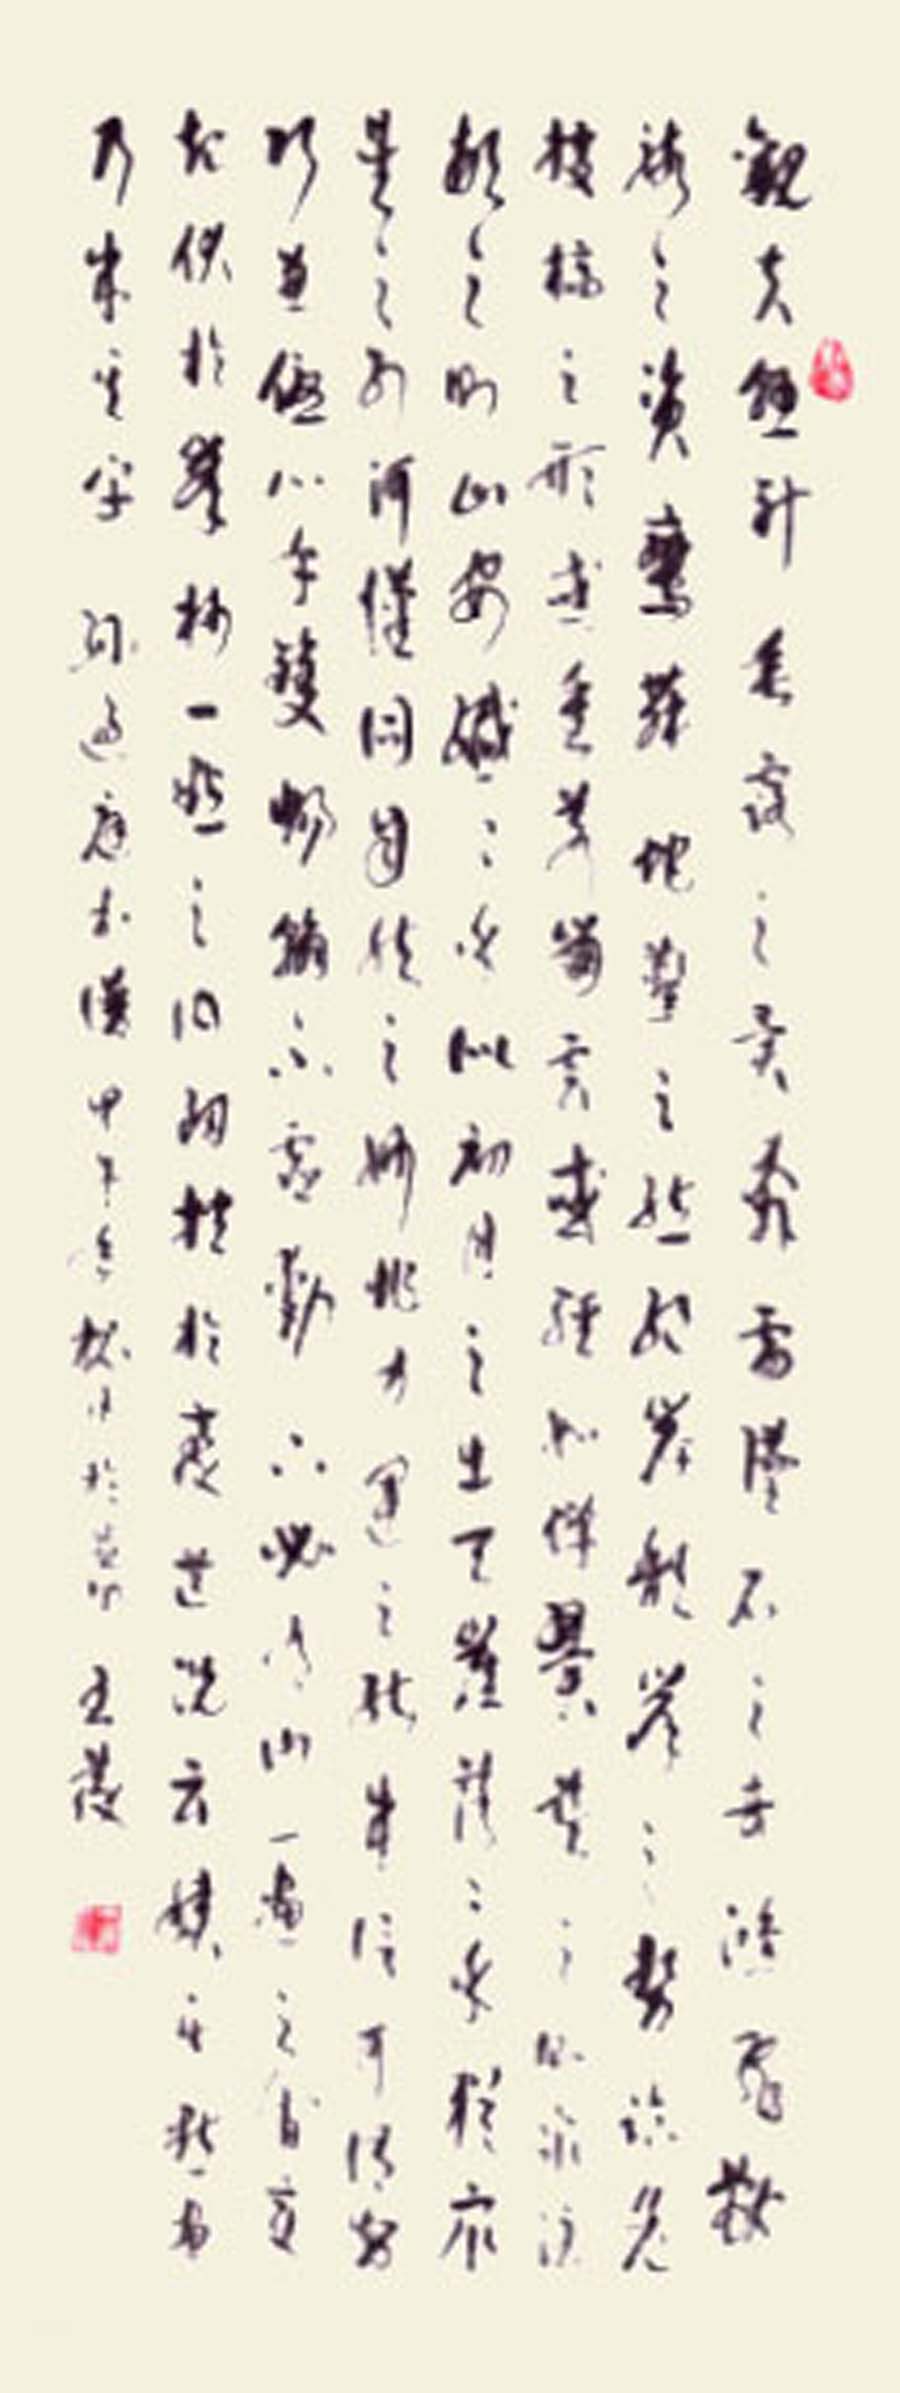 觀夫懸針垂露之異奔雷墜石之奇鴻飛獸
駭之資鸞舞蛇驚之態絕岸頹峯之勢臨危
據槁之形或重若崩雲或輕如蟬翼導之則泉注
頓之則山安纖纖乎似初月之出天崖落落乎猶衆
星之列河漢同自然之妙有非力運之能成信可謂智
巧兼優心手雙暢翰不虛動下必有由一畫之間變
起伏於峯杪一點之內殊衄挫於毫芒況云積其點畫
乃成其字 孫過庭書譜 甲午年秋月於京 王